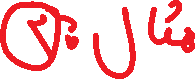 مثال ۲: